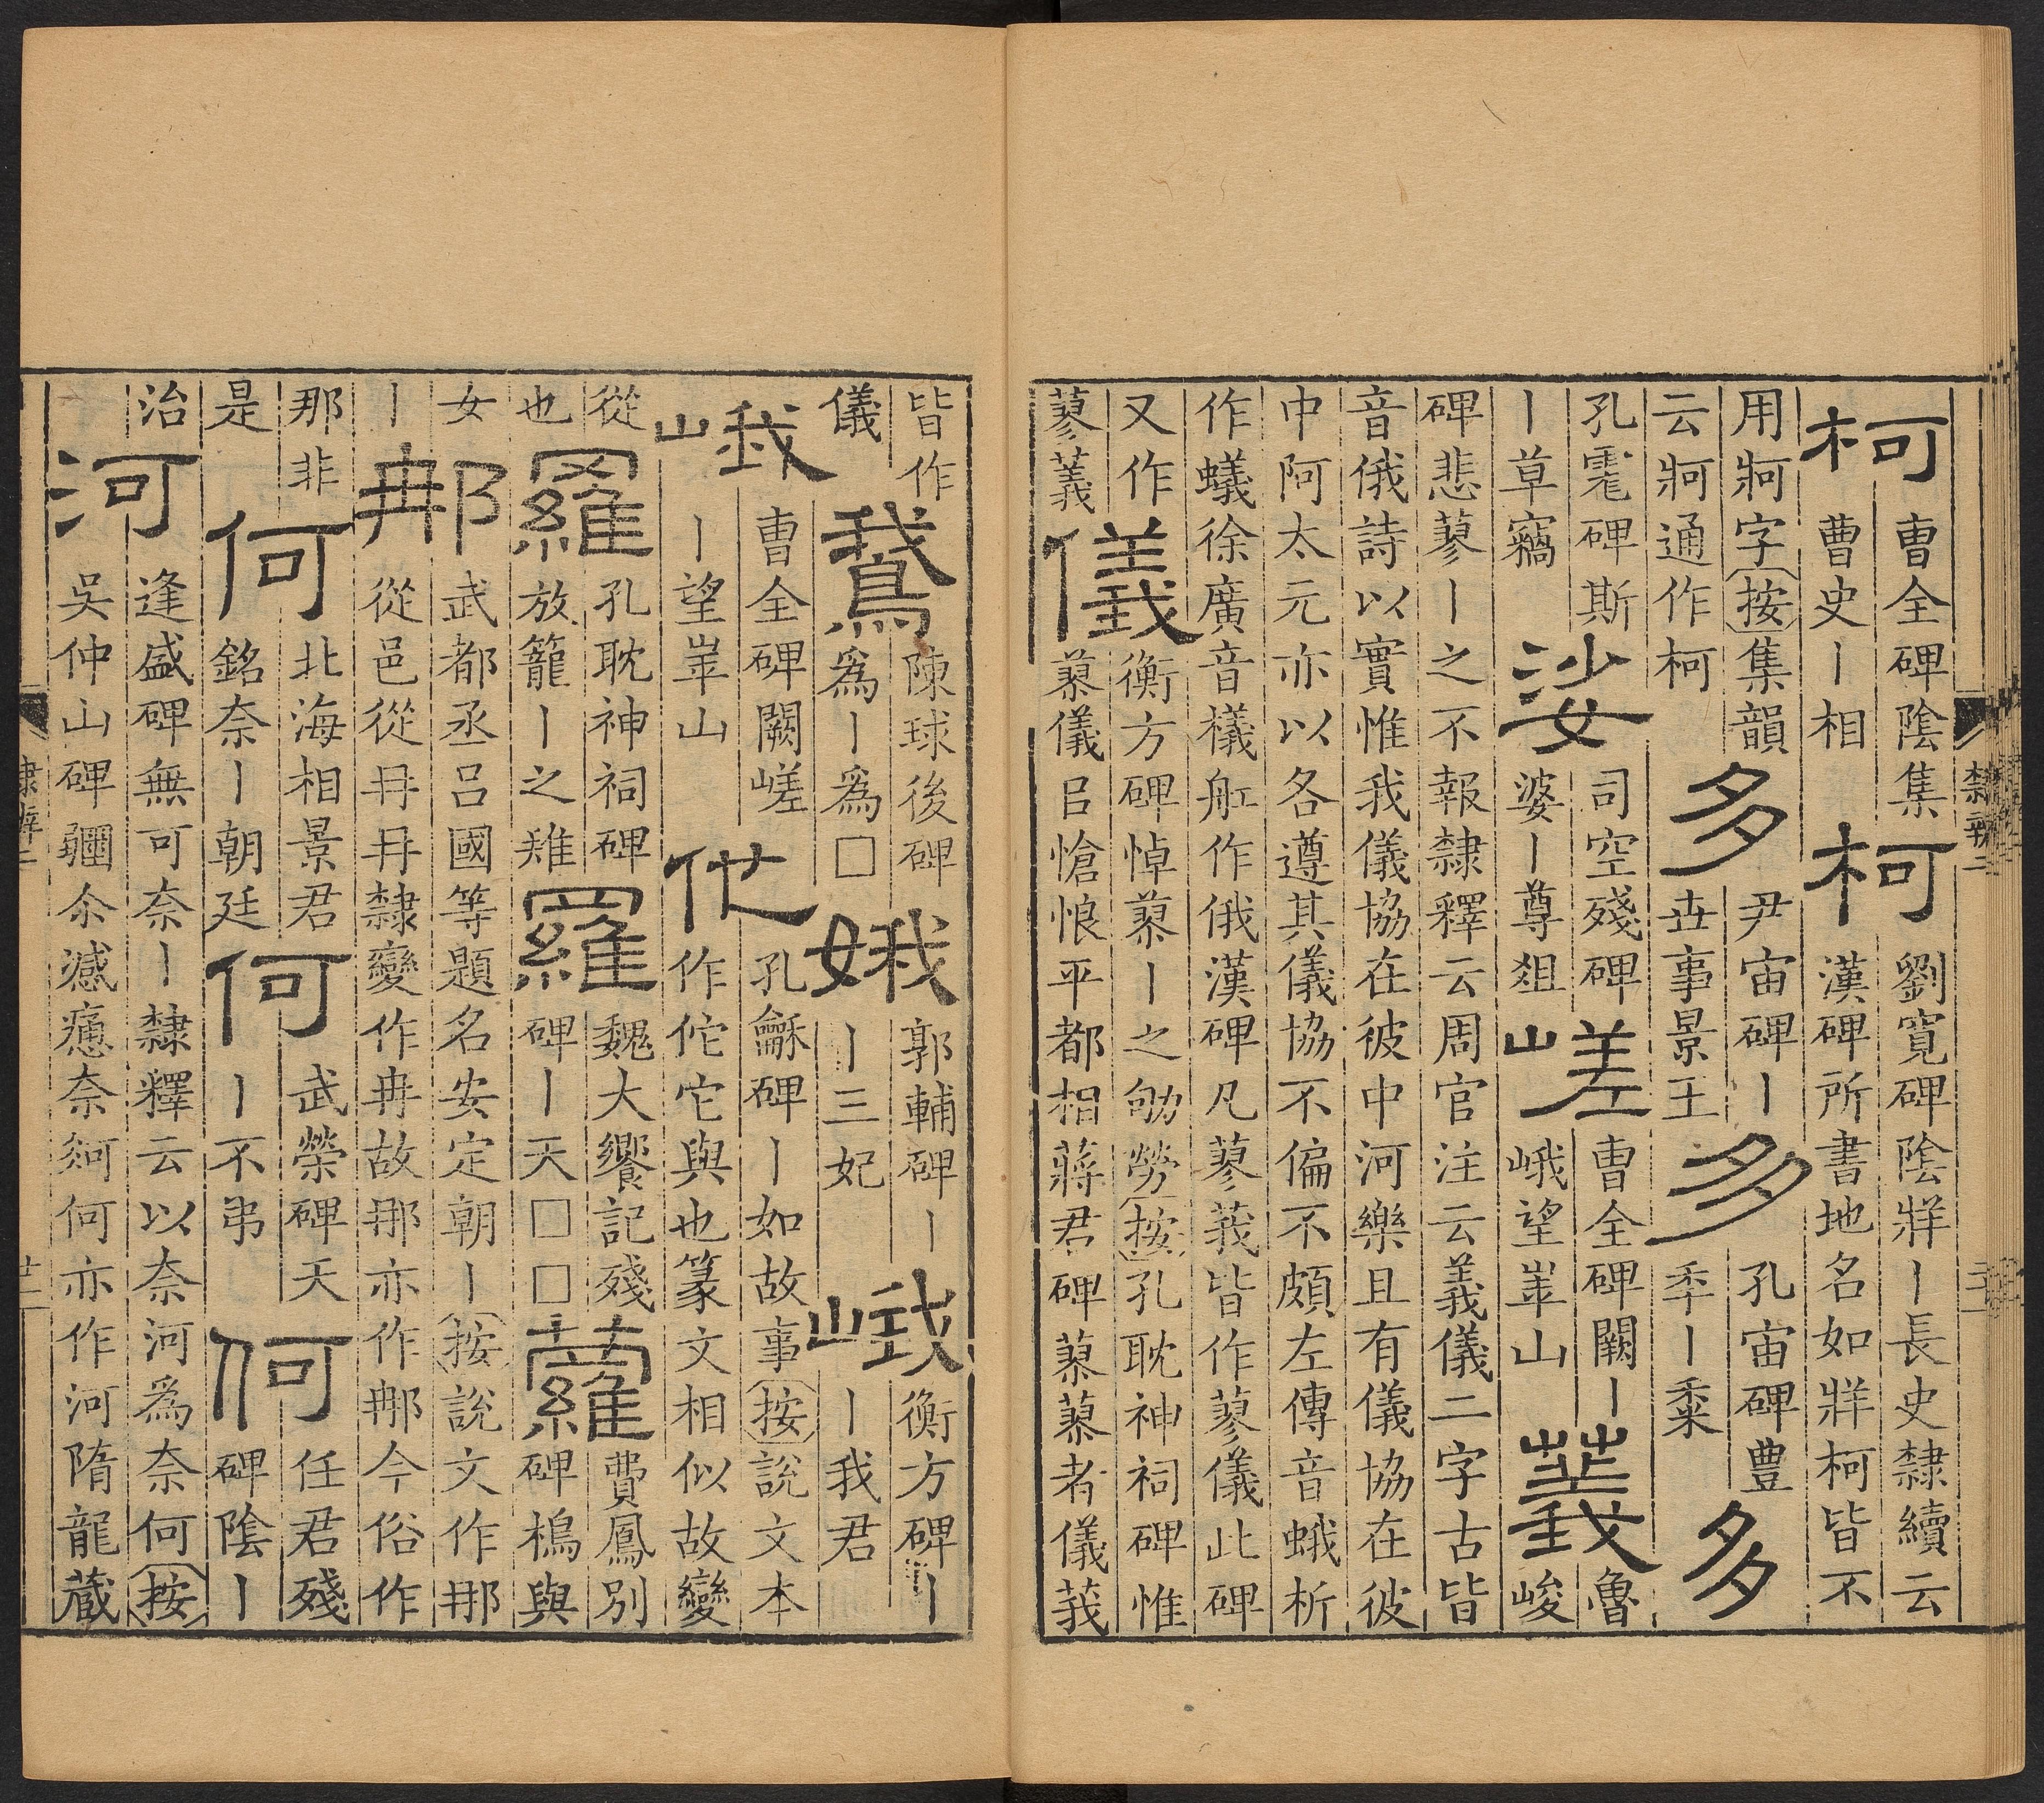 柯曹全碑陰集曹史丨相柯劉寬碑陰牂丨長史隸續云漢碑所書地名如牂柯皆不
用牁字按集韻云牁通作柯多尹宙碑丨世事景王多孔宙碑豊秊丨黍多
孔霦碑斯丨草竊娑司空殘碑婆丨尊俎嵯曹全碑闕丨峨望崋山義魯峻
碑悲蓼丨之不報隸釋云周官注云義儀二字古皆音俄詩以實惟我儀協在彼中河樂且有儀協在彼
中阿太元亦以各遵其儀協不偏不頗左傳音蛾析作蟻徐廣音檥舡作俄漢碑凡蓼莪皆作蓼儀此碑
又作蓼義儀衡方碑悼蓼丨之劬勞按孔耽神祠碑惟蓼儀㠯愴悢平都相蔣君碑蓼蓼者儀莪
隸辨二
皆作儀鵞陳球後碑爲丨爲□娥郭輔碑丨丨三妃峨衡方碑丨丨我君
峨曹全碑闕嵯丨望崋山他孔龢碑丨如故事按說文本作佗它與也篆文相似故變
從也羅孔耽神祠碑放籠丨之雉羅魏大饗記殘碑丨天□□蘿費鳳別碑樢與
女丨䣸武都丞呂國等題名安定朝丨按說文作𨙻從邑從冄冄隸變作冉故𨙻亦作䣸今俗作
那非是何北海相景君銘奈丨朝廷何武榮碑天丨不弔何任君殘碑陰丨
治河逢盛碑無可奈丨隸釋云以奈河爲奈何按吳仲山碑彊余憾奈何亦作河隋龍藏